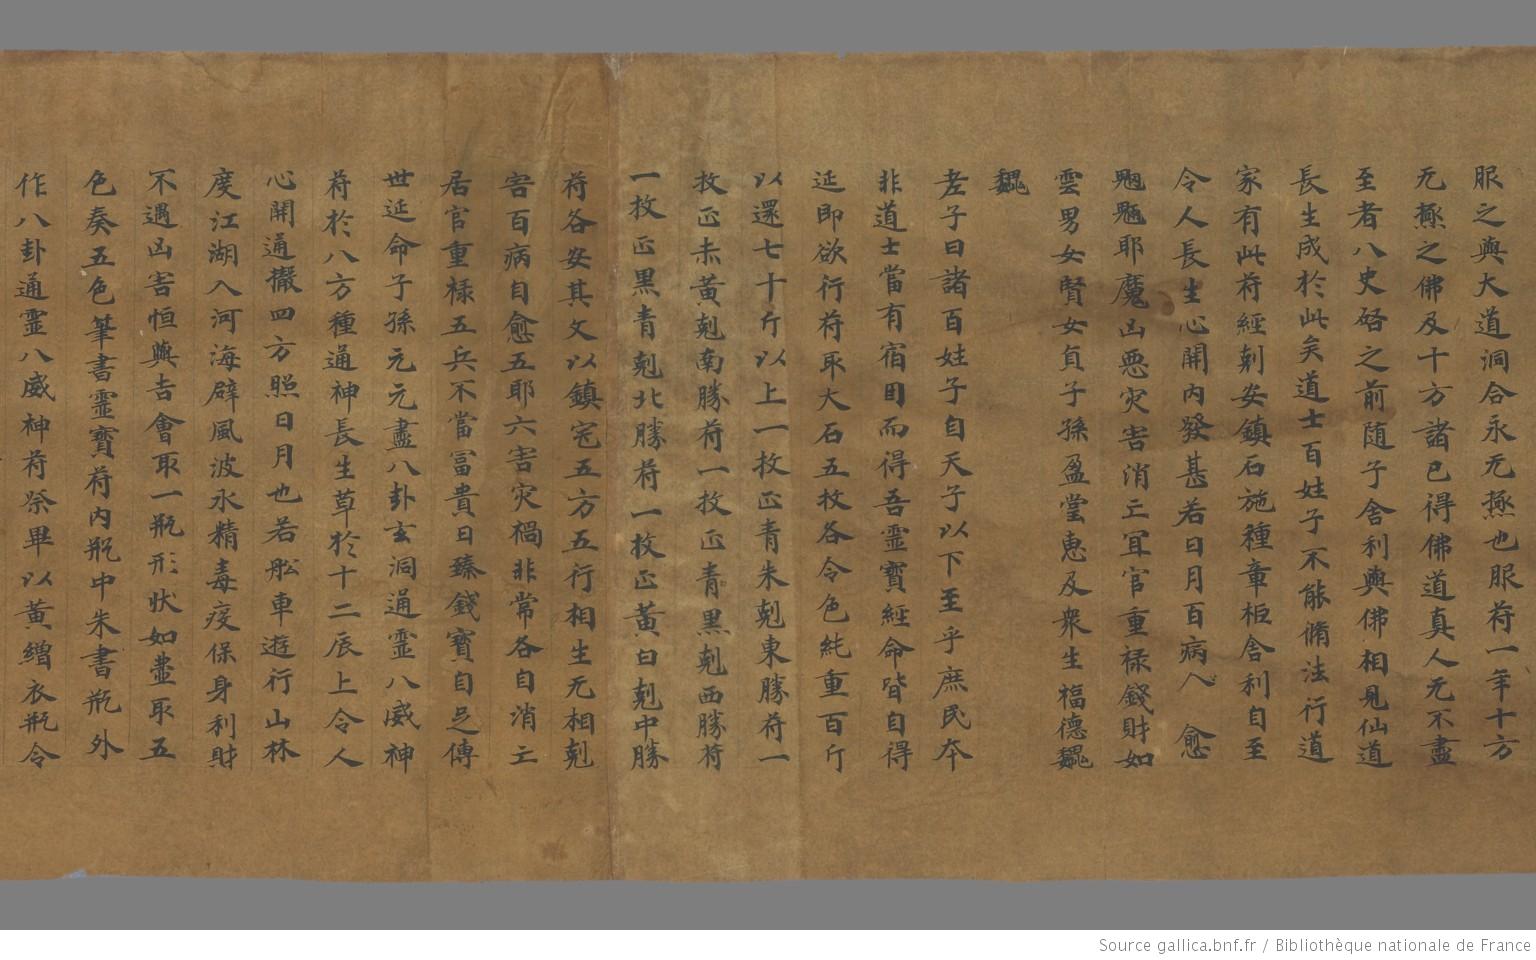 服之與大道洞合永无極也服符一年十方
无極之佛及十方諸已得佛道真人无不盡
至者八史啓之前随子舍利與佛相見仙道
長生成於此矣道士百姓子不能脩法行道
家有此符經刾安鎮石施種章柜舍利自至
令人長生心開内發甚若日月百病入 愈
魍魎耶魔凶惡灾害消亡冝官重祿錢財如
雲男女賢女貞子孫盈堂惠及衆生福德巍
巍
老子曰諸百姓子自天子以下至乎庶民夲
非道士當有宿因而得吾靈寳經命皆自得
延即欲行符取大石五枚各令色純重百斤
以還七十斤以上一枚正青朱剋東勝符一
枚正赤黃剋南勝符一枚正青黑剋西勝符
一枚正黑青剋北勝符一枚正黃白剋中勝
符各安其文以鎮宅五方五行相生无相剋
害百病自愈五耶六害灾禍非常各自消亡
居官重祿五兵不當冨貴日臻錢寳自足傳
世延命子孫元元盡八卦玄洞通靈八威神
符於八方種通神長生草於十二辰上令人
心開通徹四方照日月也若舩車遊行山林
度江湖入河海辟風波水精毒疫保身利財
不遇凶害恒與吉會取一瓶形狀如壷取五
色奏五色筆書靈寳符内瓶中朱書瓶外
作八卦通靈八威神符祭畢以黃繒衣瓶令
Source gallica.bnf.fr / Bibliothèque nationale de France